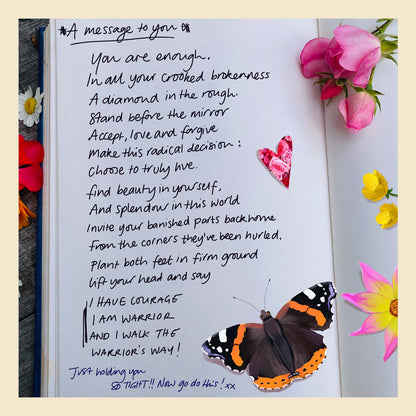 *A message to you*
You are enough.
In all your crooked brokenness
A diamond in the rough.
Stand before the mirror
Accept, love and forgive
Make this radical decision:
Choose to truly live.
find beauty in yourself,
And splendour in this world
Invite your banished parts back home
From the corners they've been hurled.
Plant both feet in firm ground
lift your head and say
I HAVE COURAGE
I AM WARRIOR
AND I WALK THE
WARRIOR'S WAY!
Just holding you
SO TIGHT!! Now go do this! xx